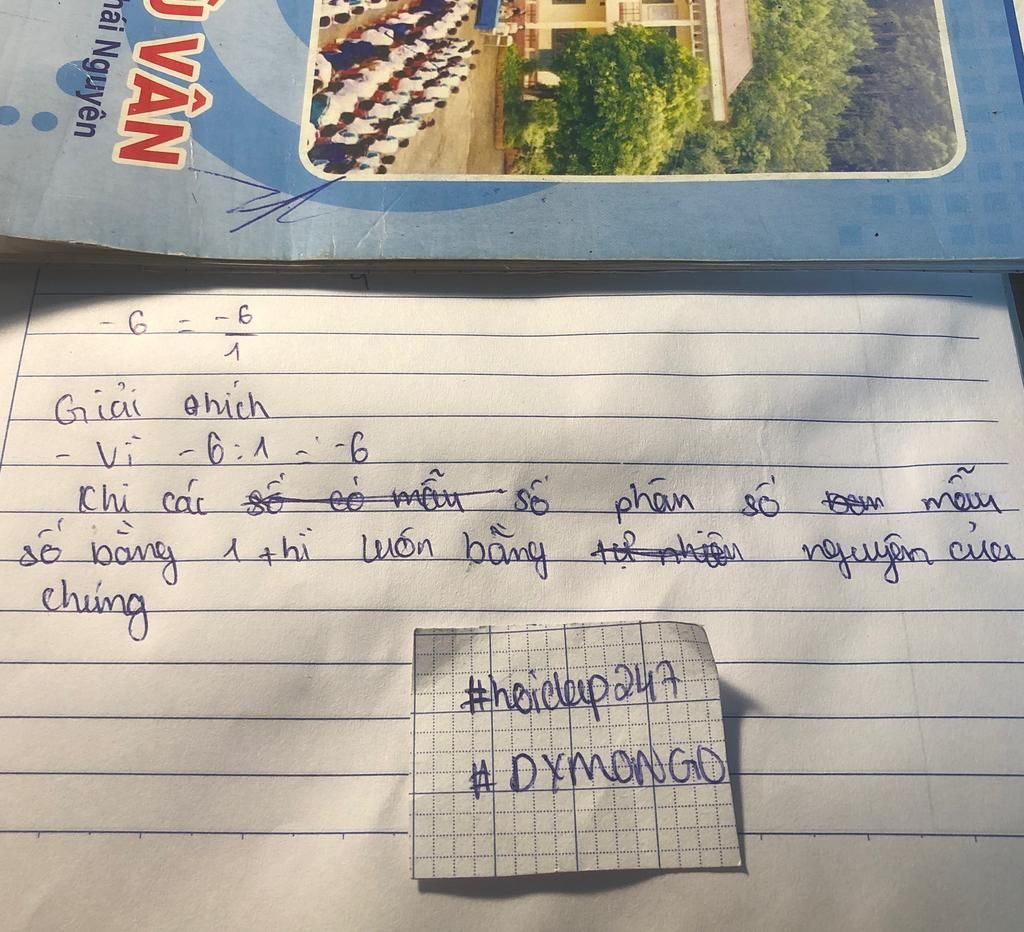 Ũ VÂN
hái Nguyên
-6 = -6/1
Giải thích
- Vì -6:1 = -6
Khi các số có mẫu số phân số mẫu
số bằng 1 thì luôn bằng tự nhiên nguyên của
chúng
#hoidap247
#DYMONGO